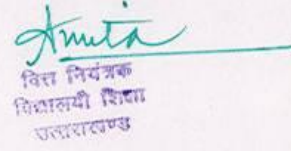 Amita
वित्त नियंत्रक
विद्यालयी शिक्षा
उत्तराखण्ड